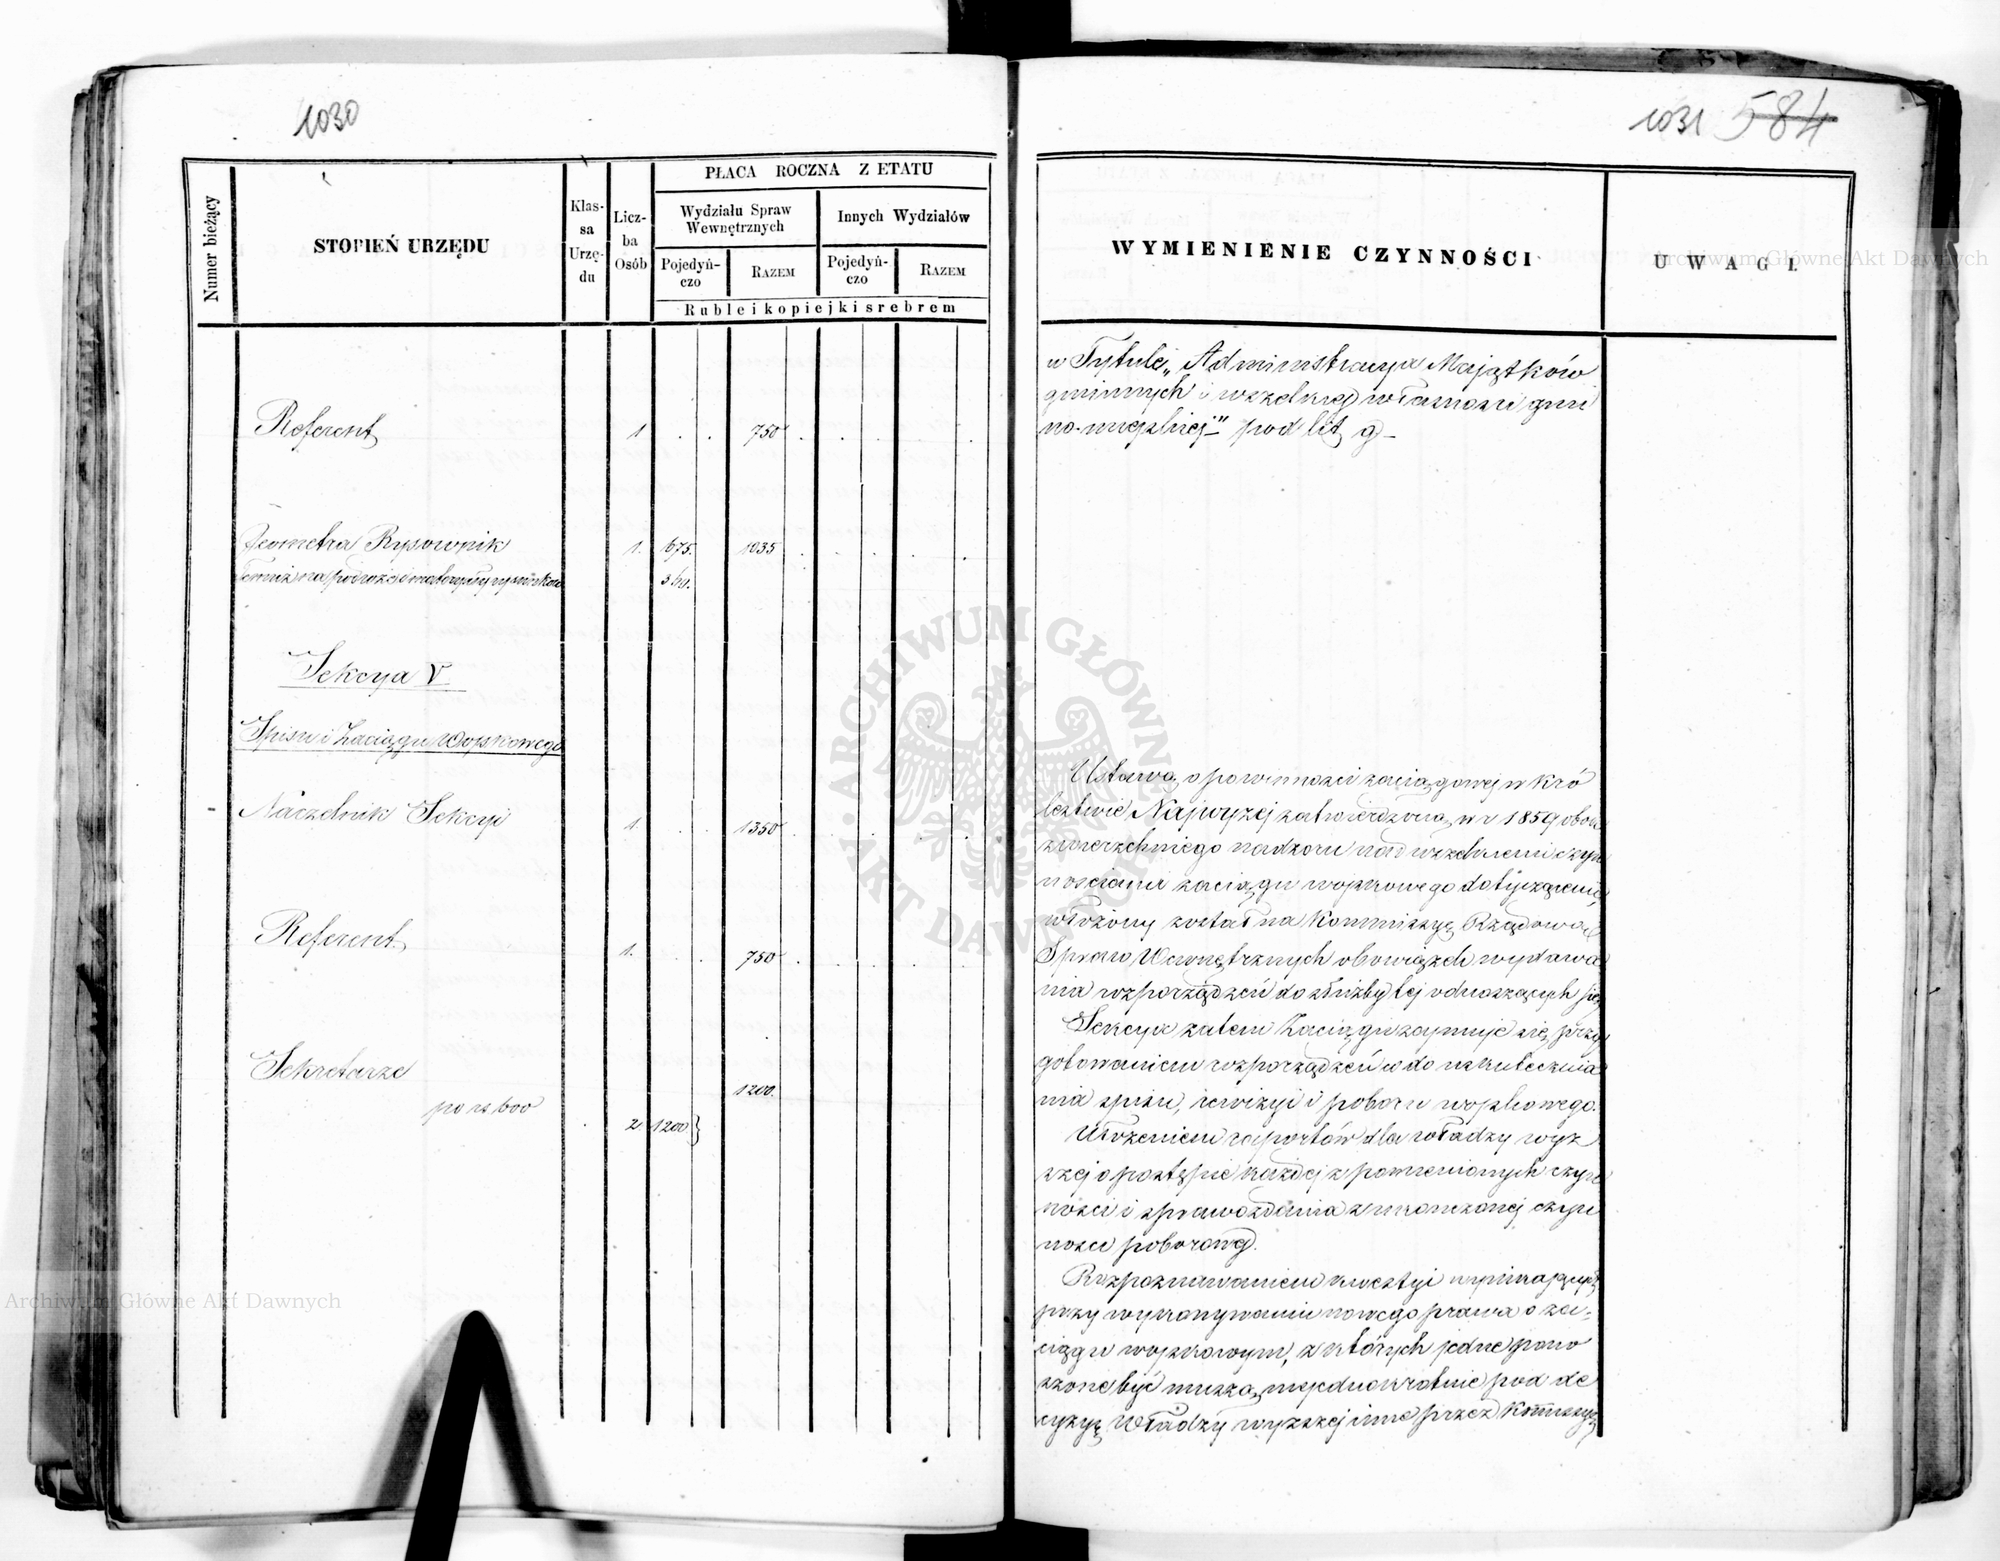 1030
Numer bieżący
STOPIEŃ URZĘDU
Klas-
sa
Urzę-
du
Licz-
ba
Osób
PŁACA ROCZNA Z ETATU
Wydziału Spraw
Wewnętrznych
Innych Wydziałów
Pojedyń-
czo
RAZEM
Pojedyń-
czo
RAZEM
Ruble i kopiejki srebrem
Referent 1 750
Jeometra Rysownik 1. 675. 1035
Temuż na podróże i materyały rysunkowe 360.
Sekcya V
Spisu i Zaciągu Wojskowego
Naczelnik Sekcyi 1. 1350
Referent 1. 750
Sekretarze 1200.
po rs 600 2 1200 }
1031 584
WYMIENIENIE CZYNNOŚCI
UWAGI.
w Tytule „Administracya Majątków
gminnych i wszelkiej własności gmi
no-miejskiej" pod lit g
Ustawą o powinności zaciągowej w Kró
lestwie Najwyżej zatwierdzoną w r 1859 obok
zwierzchniego nadzoru nad wszelkiemi czyn
nościami zaciągu wojskowego dotyczącemi,
włożony został na Kommissyę Rządową
Spraw Wewnętrznych obowiązek wydawa
nia rozporządzeń do służby tej odnoszących się
Sekcya zatem Zaciągu zajmuje się przy
gotowaniem rozporządzeń do uskutecznia
nia spisu, rewizyi i poboru wojskowego.
Ułożeniem raportów dla władzy wyż
szej o postępie każdej z pomienionych czyn
ności i sprawozdania z ukończonej czyn
ności poborowej.
Rozpoznawaniem kwestyi wynikających
przy wykonywaniu nowego prawa o za-
ciągu wojskowym, z których jedne pono
szone być muszą niejednokrotnie pod de
cyzyę Władzy wyższej inne przez Kommissyę
Archiwum Główne Akt Dawnych
Archiwum Główne Akt Dawnych
ARCHIWUM GŁÓWNE AKT DAWNYCH